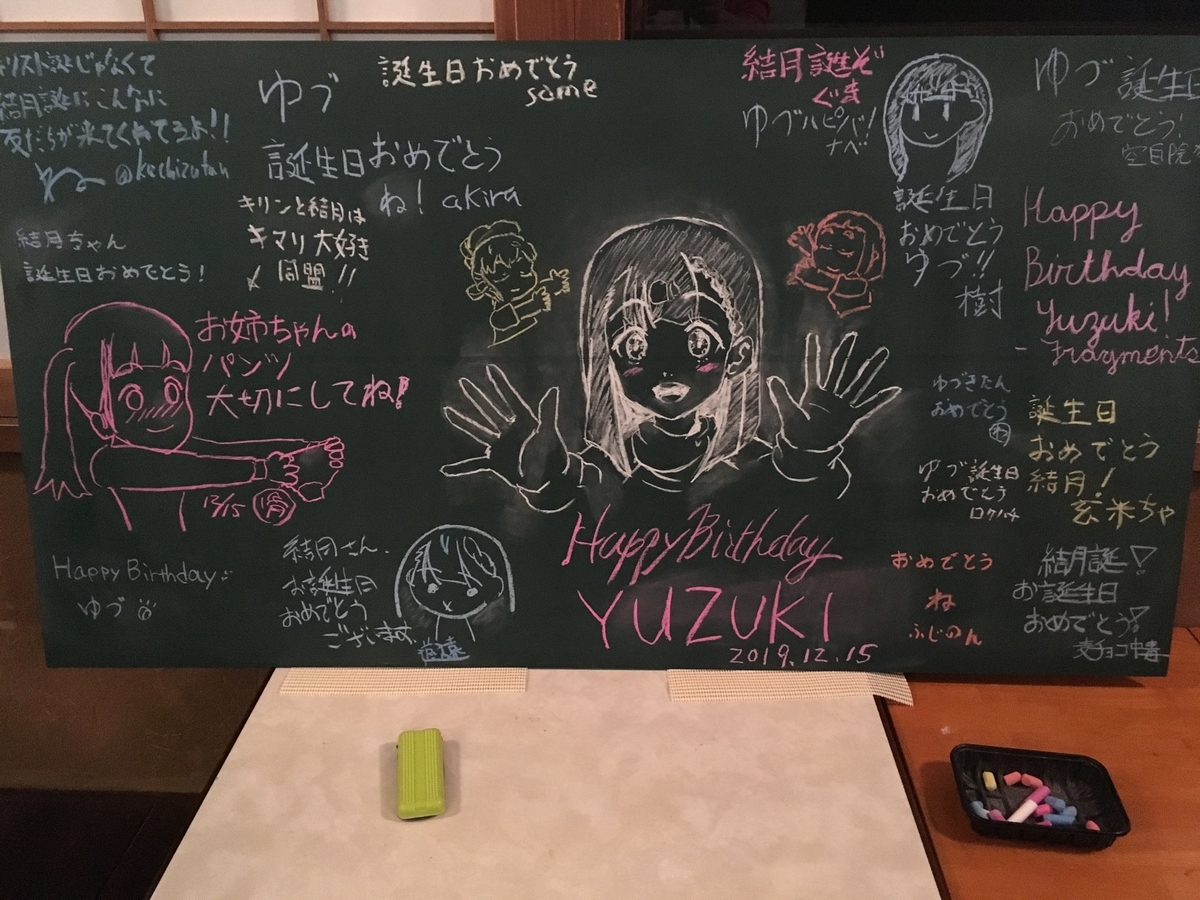 キリスト誕じゃなくて
結月誕にこんなに
友だちが来てくれてるよ!!
@kechizutan
ゆづ
誕生日おめでとう
ね! akira
誕生日おめでとう
same
結月誕ぞ
ぐま
ゆづハピバ!
ナベ
ゆづ 誕生日
おめでとう!
結月ちゃん
誕生日おめでとう!
キリンと結月は
キマリ大好き
同盟!!
誕生日
おめでとう
ゆづ!!
樹
Happy
Birthday
Yuzuki!
- Fragments
お姉ちゃんの
パンツ
大切にしてね!
12/15
ゆづきたん
おめでとう
誕生日
おめでとう
結月!
玄米ちゃ
ゆづ 誕生日
おめでとう
ロクハチ
Happy Birthday
ゆづ
結月さん、
お誕生日
おめでとう
ございます
Happy Birthday
YUZUKI
2019.12.15
おめでとう
ね
ふじのん
結月誕!
お誕生日
おめでとう!
麦チョコ中毒